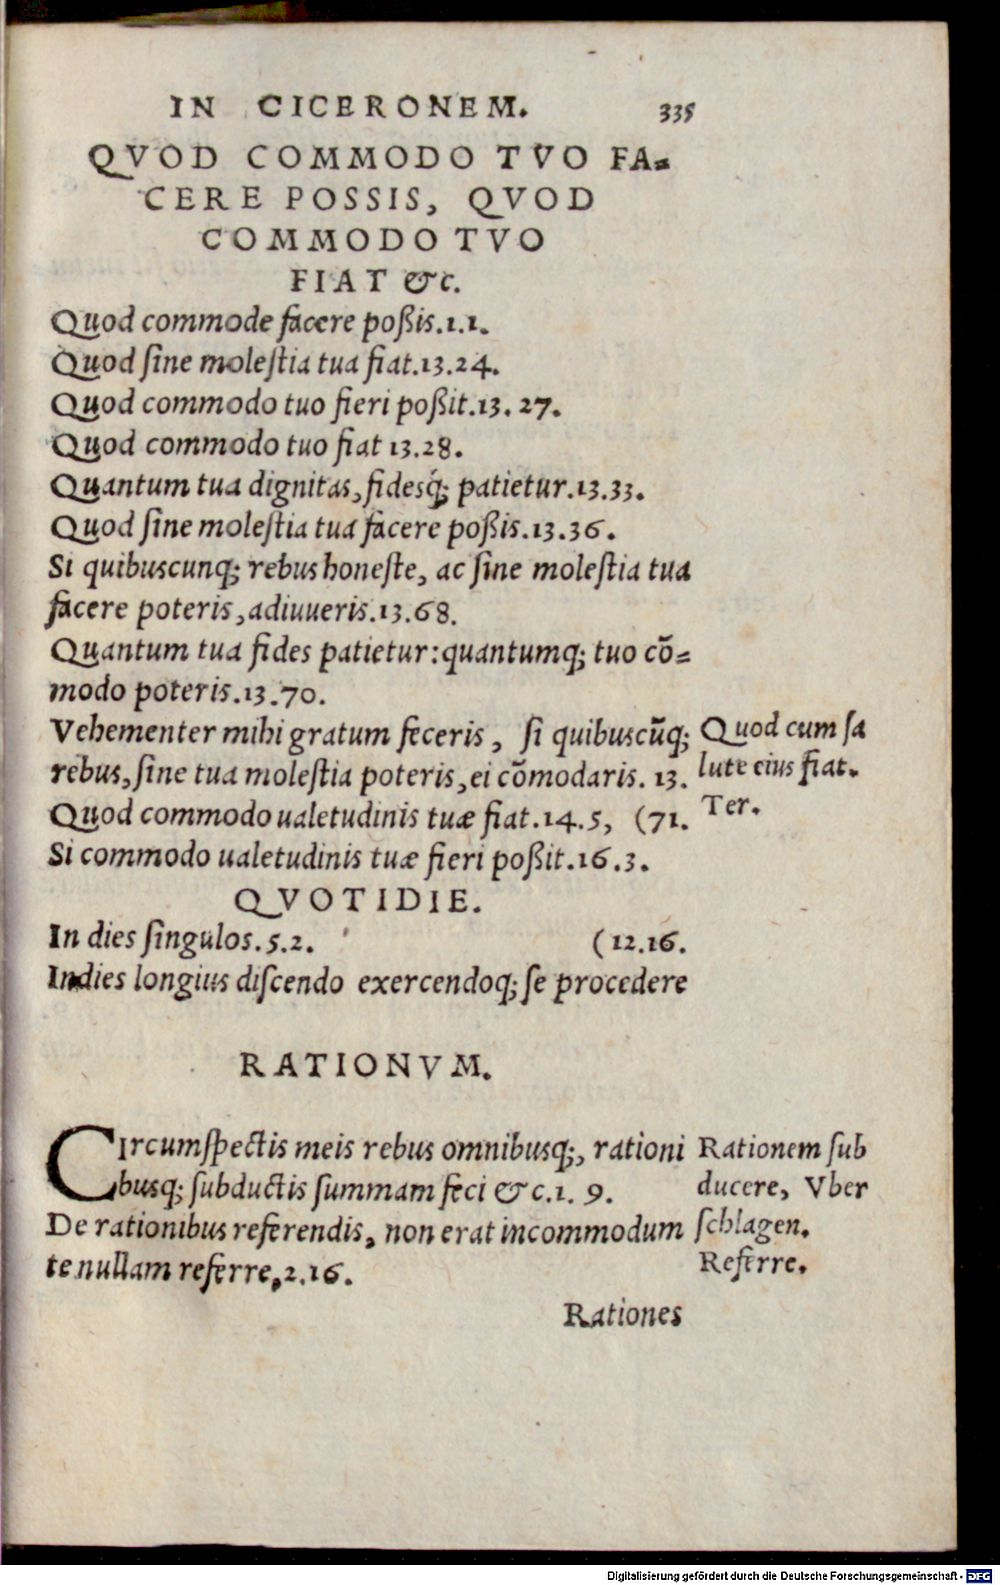 IN CICERONEM. 335
QVOD COMMODO TVO FA=
CERE POSSIS, QVOD
COMMODO TVO
FIAT &c.
Quod commode facere poßis.1.1.
Quod ſine moleſtia tua fiat.13.24.
Quod commodo tuo fieri poßit.13. 27.
Quod commodo tuo fiat 13.28.
Quantum tua dignitas, fidesq́; patietur.13.33.
Quod ſine moleſtia tua facere poßis.13.36.
Si quibuscunq; rebus honeſte, ac ſine moleſtia tua
facere poteris, adiuueris.13.68.
Quantum tua fides patietur: quantumq; tuo cõ=
modo poteris.13.70.
Vehementer mihi gratum feceris, ſi quibuscũq;
rebus, ſine tua moleſtia poteris, ei cõmodaris. 13.
Quod commodo ualetudinis tuæ fiat.14.5, (71.
Si commodo ualetudinis tuæ fieri poßit.16.3.
Quod cum ſa
lute eius fiat.
Ter.
QVOTIDIE.
In dies ſingulos.5.2. (12.16.
Indies longius diſcendo exercendoq; ſe procedere
RATIONVM.
CIrcumſpectis meis rebus omnibusq;, rationi
busq; ſubductis ſummam feci &c.1. 9.
De rationibus referendis, non erat incommodum
te nullam referre,2.16.
Rationem ſub
ducere, Vber
ſchlagen.
Referre.
Rationes
Digitalisierung gefördert durch die Deutsche Forschungsgemeinschaft - DFG